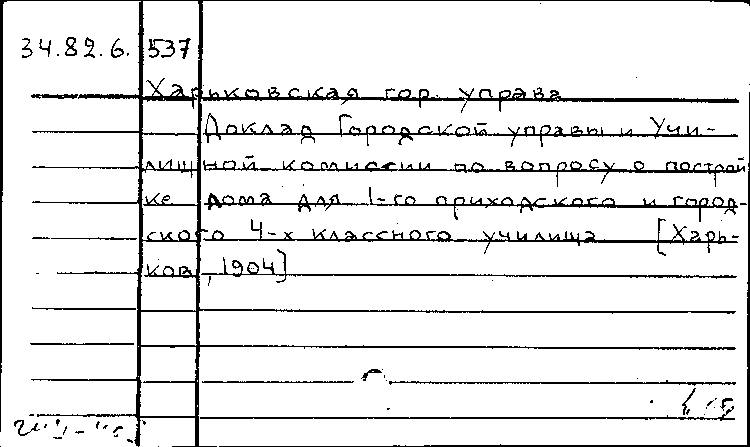 34.82.6. 537
Харьковская гор. управа
Доклад Городской управы и Учи-
лищной комиссии по вопросу о построй
ке дома для 1-го приходского и город-
ского 4-х классного училища [Харь-
ков, 1904]